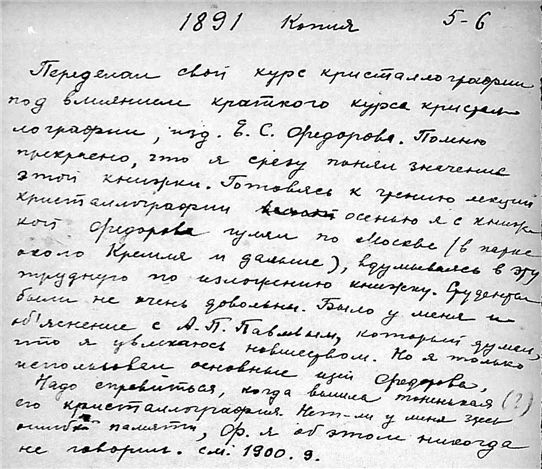 1891 Копия 5-6
Переделал свой курс кристаллографии
под влиянием краткого курса кристал
лографии, изд. Е. С. Федорова. Помню
прекрасно, что я сразу понял значение
этой книжки. Готовясь к чтению лекций
кристаллографии осенью я с книж
кой Федорова гулял по Москве (в парке
около Кремля и дальше), вдумываясь в эту
трудную по изложению книжку. Студенты
были не очень довольны. Было у меня и
объяснение с А. П. Павловым, который думал,
что я увлекаюсь новшеством. Но я только
использовал основные идеи Федорова.
Надо справиться, когда вышла тоненькая (?)
его кристаллография. Нет-ли у меня здесь
ошибки памяти, Ф. я об этом никогда
не говорил. см. 1900. 9.